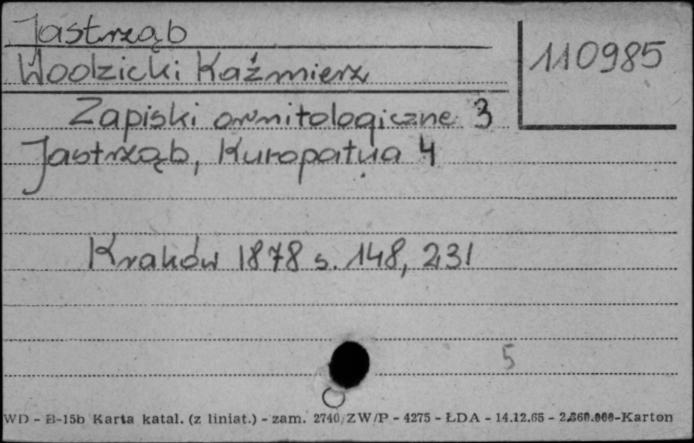 Jastrząb
110985
Wodzicki Kaźmierz
Zapiski ornitologiczne 3
Jastrząb, Kuropatwa 4
Kraków 1878 s. 148, 231
5
WD - B-15b Karta katal. (z liniat.) - zam. 2740/ZW/P - 4275 - ŁDA - 14.12.65 - 2.860.000-Karton